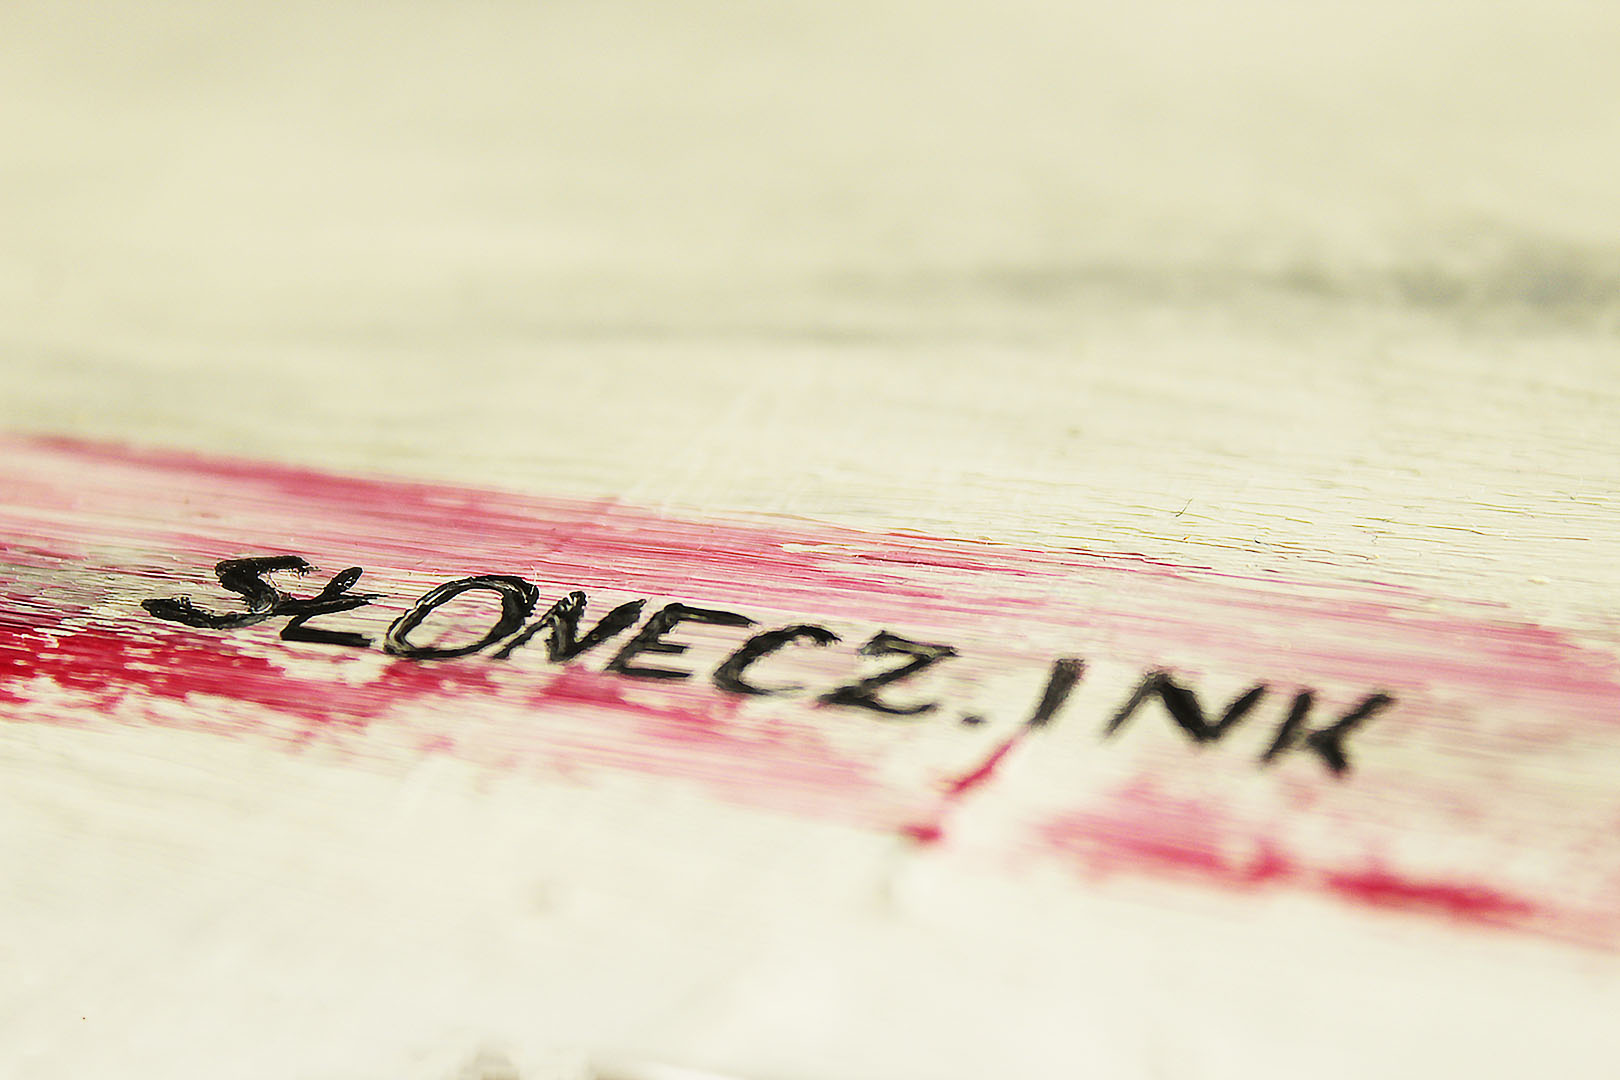 SŁONECZ.INK